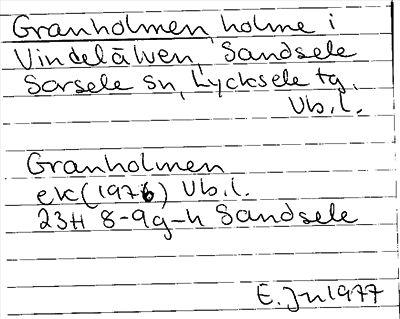 Granholmen, holme i
Vindelälven, Sandsele
Sorsele sn, Lycksele tg.
Vb.l.
Granholmen
ek (1976) Vb.l.
23H 8-9g-h Sandsele
E. Jn 1977